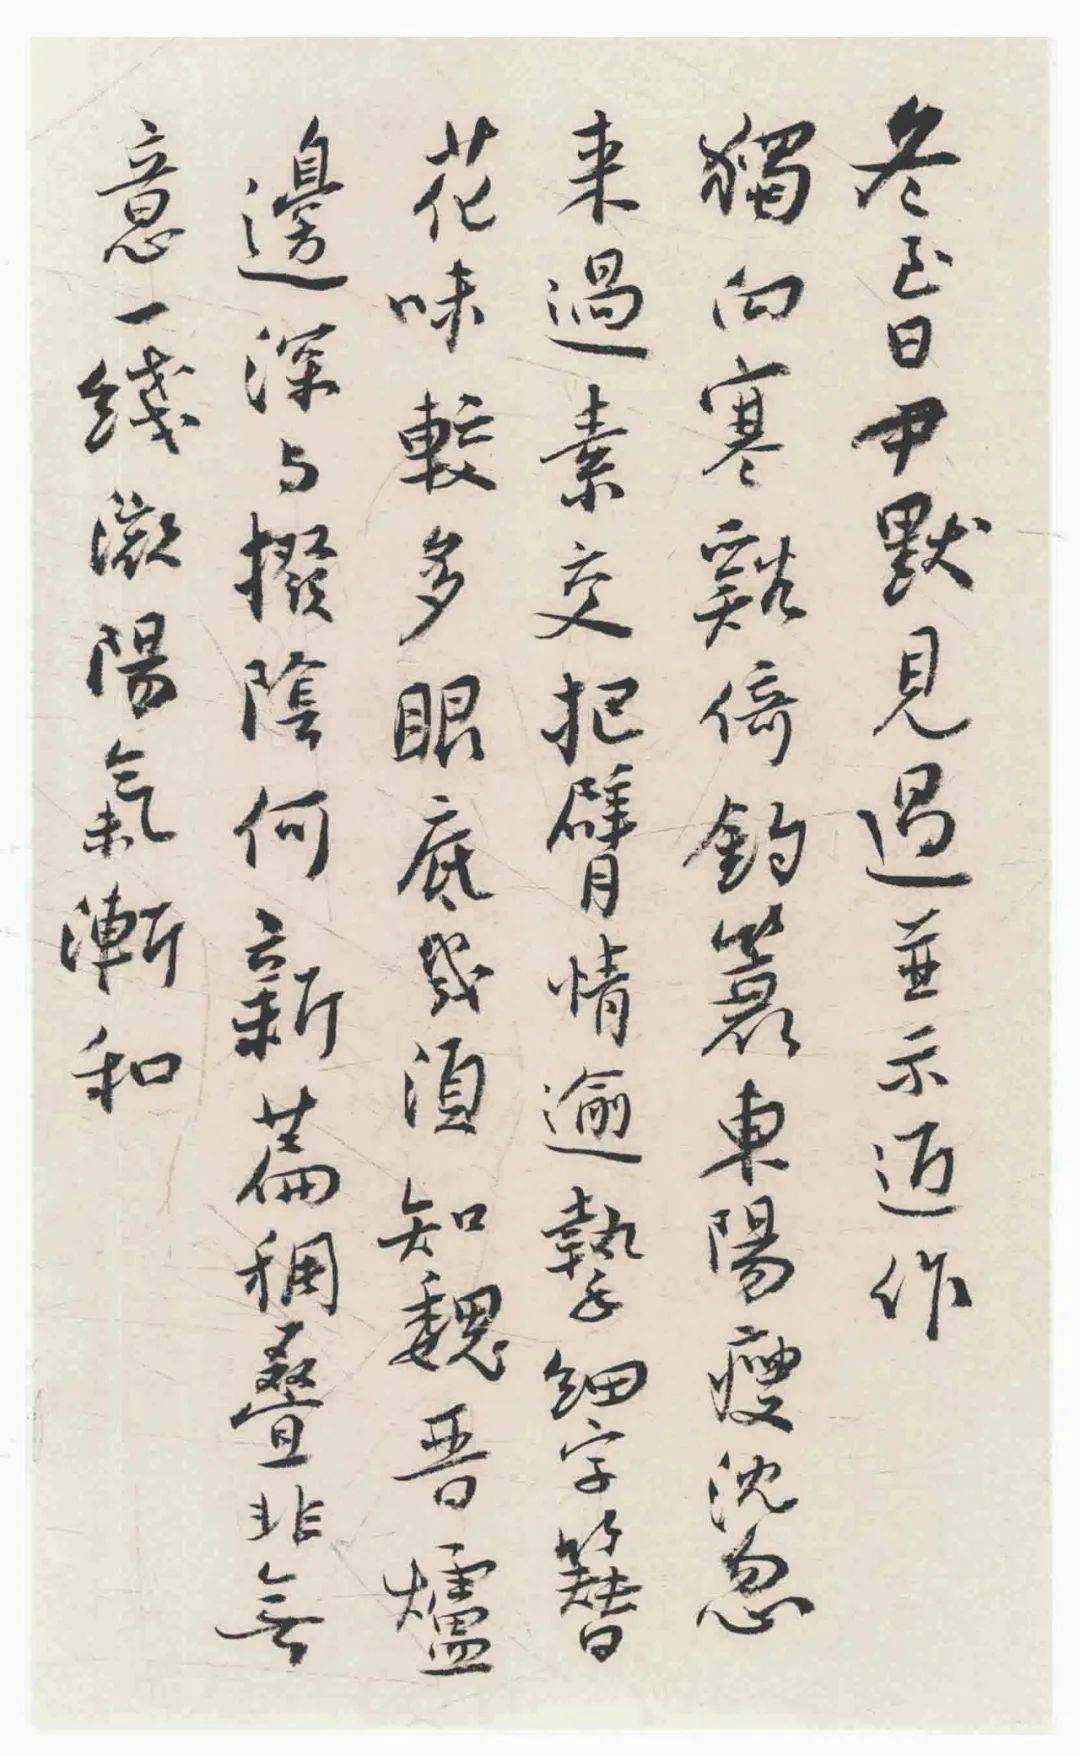 冬至日尹默見過並示近作
獨向寒谿倚釣蓑東陽瘦沈忽
来過素交把臂情逾摯細字簪
花味較多眼底幾須知魏晋爐
邊深与撥陰何新篇稠疊非無
意一綫微陽氣漸和